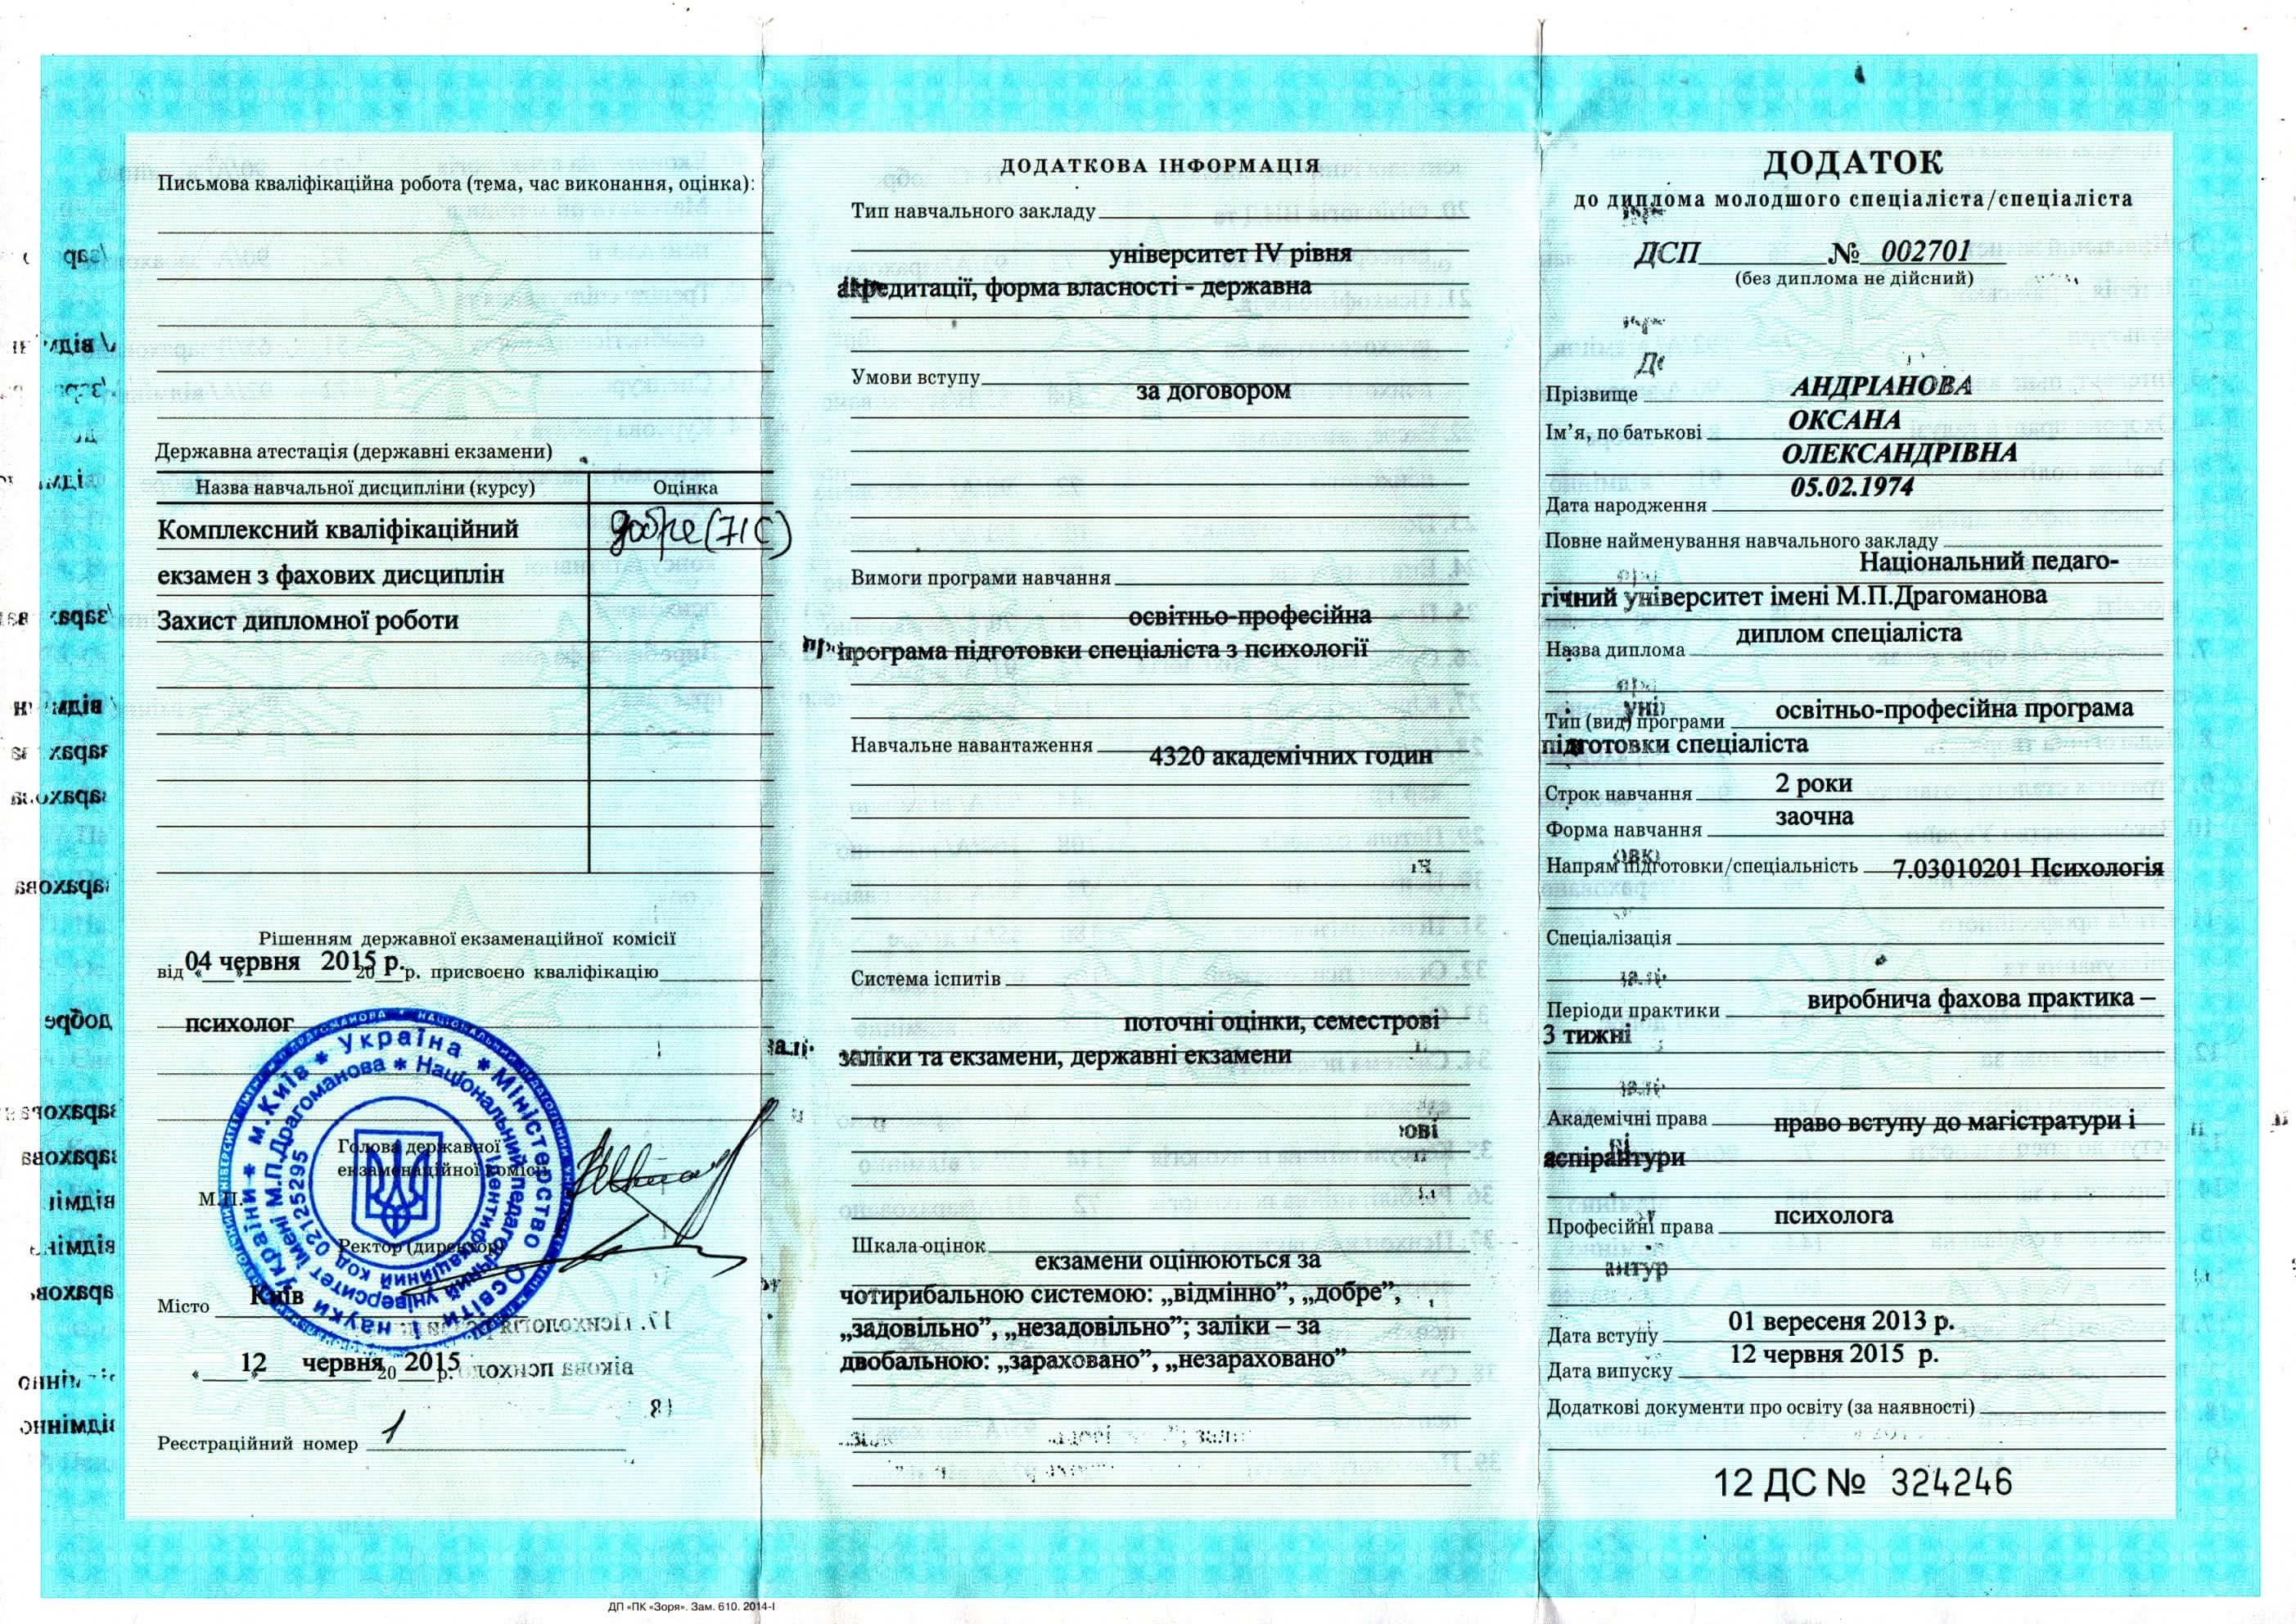 Письмова кваліфікаційна робота (тема, час виконання, оцінка):
Державна атестація (державні екзамени)
Назва навчальної дисципліни (курсу) Оцінка
Комплексний кваліфікаційний добре (71С)
екзамен з фахових дисциплін
Захист дипломної роботи
Рішенням державної екзаменаційної комісії
від « 04 » червня 2015 р. 20 р. присвоєно кваліфікацію
психолог
Голова державної
екзаменаційної комісії
М.П.
Ректор (директор)
Україна * Міністерство освіти і науки України * м.Київ *
Національний педагогічний університет імені М.П.Драгоманова *
Ідентифікаційний код 02125295
Місто Київ
« 12 » червня 20 2015 р.
Реєстраційний номер 1
ДОДАТКОВА ІНФОРМАЦІЯ
Тип навчального закладу
університет IV рівня
акредитації, форма власності - державна
Умови вступу
за договором
Вимоги програми навчання
освітньо-професійна
програма підготовки спеціаліста з психології
Навчальне навантаження
4320 академічних годин
Система іспитів
поточні оцінки, семестрові
заліки та екзамени, державні екзамени
Шкала-оцінок
екзамени оцінюються за
чотирибальною системою: „відмінно”, „добре”,
„задовільно”, „незадовільно”; заліки – за
двобальною: „зараховано”, „незараховано”
ДОДАТОК
до диплома молодшого спеціаліста/спеціаліста
ДСП № 002701
(без диплома не дійсний)
Прізвище АНДРІАНОВА
Ім’я, по батькові ОКСАНА
ОЛЕКСАНДРІВНА
Дата народження 05.02.1974
Повне найменування навчального закладу
Національний педаго-
гічний університет імені М.П.Драгоманова
Назва диплома диплом спеціаліста
Тип (вид) програми освітньо-професійна програма
підготовки спеціаліста
Строк навчання 2 роки
Форма навчання заочна
Напрям підготовки/спеціальність 7.03010201 Психологія
Спеціалізація
Періоди практики виробнича фахова практика –
3 тижні
Академічні права право вступу до магістратури і
аспірантури
Професійні права психолога
Дата вступу 01 вересеня 2013 р.
Дата випуску 12 червня 2015 р.
Додаткові документи про освіту (за наявності)
12 ДС № 324246
ДП «ПК «Зоря». Зам. 610. 2014-І